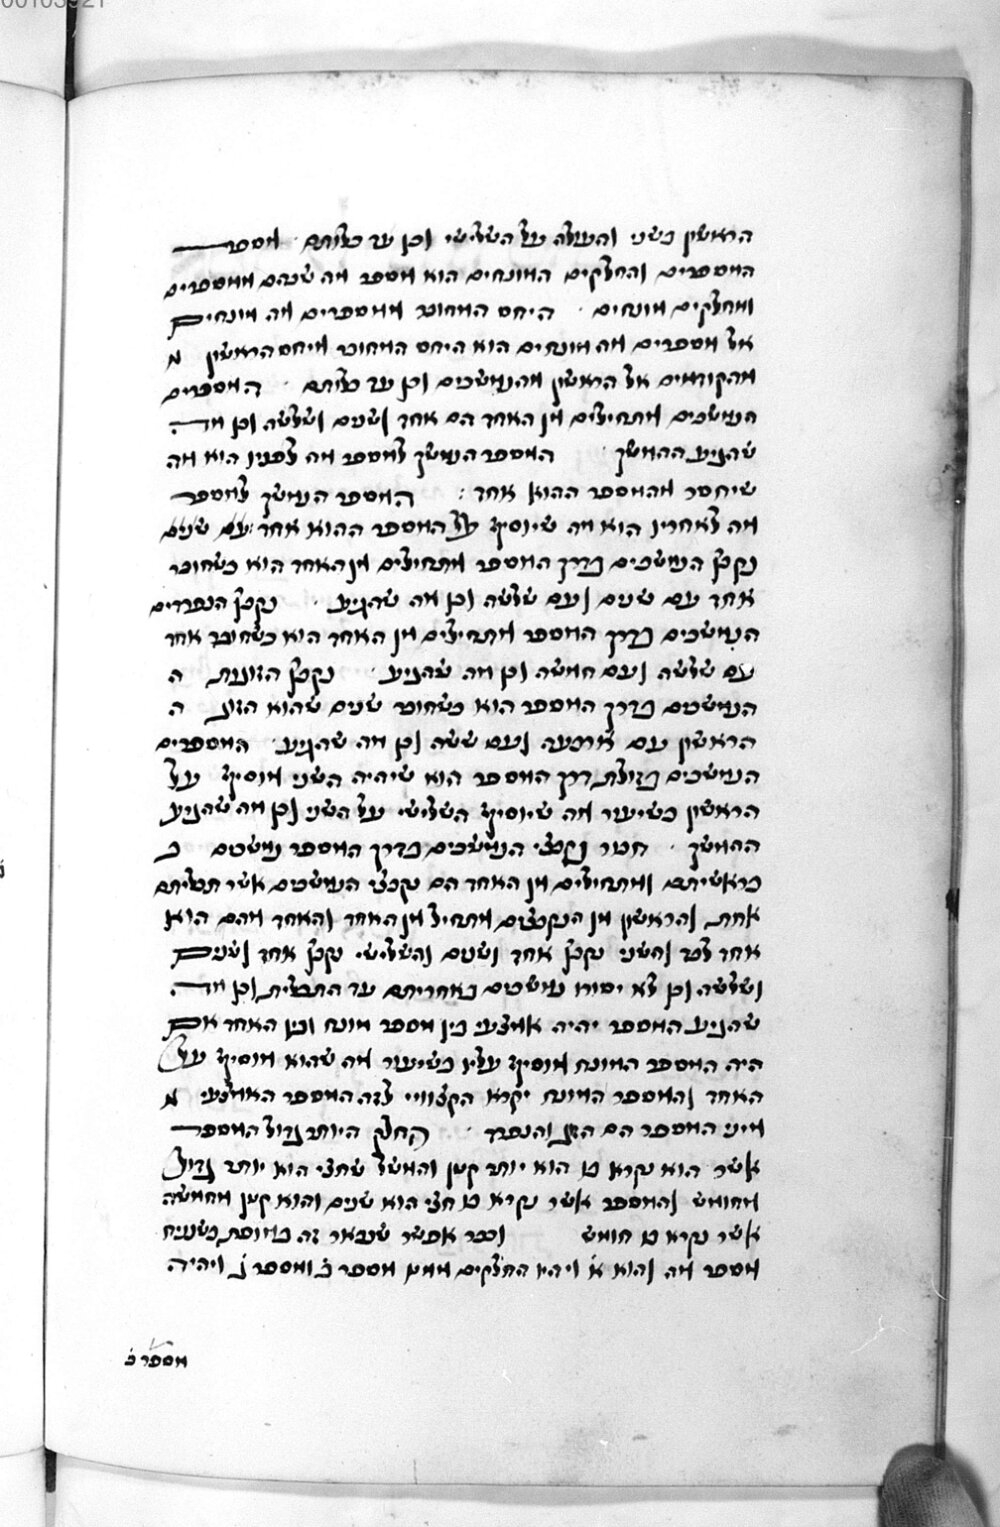 הראשון בשני והעולה על השלישי וכן עד כלותם מספר
המספרים והחלקים המונחים הוא מספר מה שבהם ממספרים
ומחלקים מונחים היחס המחובר ממספרים מה מונחים
אל מספרים מה מונחים הוא היחס המחובר מיחס הראשון מ
מהקודמים אל הראשון מהנמשכים וכן עד כלותם המספרים
הנמשכים מתחילים מן האחד הם אחד ושנים ושלשה וכן מה
שהגיע ההמשך המספר הנמשך למספר מה לפניו הוא מה
שיחסר מהמספר ההוא אחד המספר הנמשך למספר
מה לאחריו הוא מה שיוסיף על המספר ההוא אחד עם שנים
נקבץ הנמשכים בדרך המספר מתחילים מן האחד הוא כשחובר
אחד עם שנים ועם שלשה וכן מה שהגיע נקבץ הנפרדים
הנמשכים בדרך המספר מתחילים מן האחד הוא כשחובר אחד
עם שלשה ועם חמשה וכן מה שהגיע נקבץ הזוגות ה
הנמשכים בדרך המספר הוא כשחובר שנים שהוא הזוג ה
הראשון עם ארבעה ועם ששה וכן מה שהגיע המספרים
הנמשכים בזולת דרך המספר הוא שיהיה השני מוסיף על
הראשון כשיעור מה שיוסיף השלישי על השני וכן מה שהגיע
ההמשך חבור נקבצי הנמשכים בדרך המספר נמשכים ב
בראשיתם ומתחילים מן האחד הם נקבצי הנמשכים אשר תכליתם
אחת והראשון מן הנקבצים מתחיל מן האחד והאחד מהם הוא
אחד לבד והשני נקבץ אחד ושנים והשלישי נקבץ אחד ושנים
ושלשה וכן לא יסורו נמשכים באחריתם עד התכלית וכן מה
שהגיע המספר יהיה אמצעי בין מספר מונח ובין האחד אם
היה המספר המונח מוסיף עליו כשיעור מה שהוא מוסיף על
האחד והמספר המונח יקרא הקצוויי לזה המספר האמצעי מ
מיני המספר הם הזוג והנפרד החלק היותר גדול המספר
אשר הוא נקרא בו הוא יותר קטן והמשל שחצי הוא יותר גדול
מחומש והמספר אשר נקרא בו חצי הוא שנים והוא קטן מחמשה
אשר נקרא בו חומש וכבר אפשר שנבאר זה במופת כשנניח
מספר מה והוא א ויהיו החלקים ממנו מספר ב ומספר ג ויהיה
מספר ב